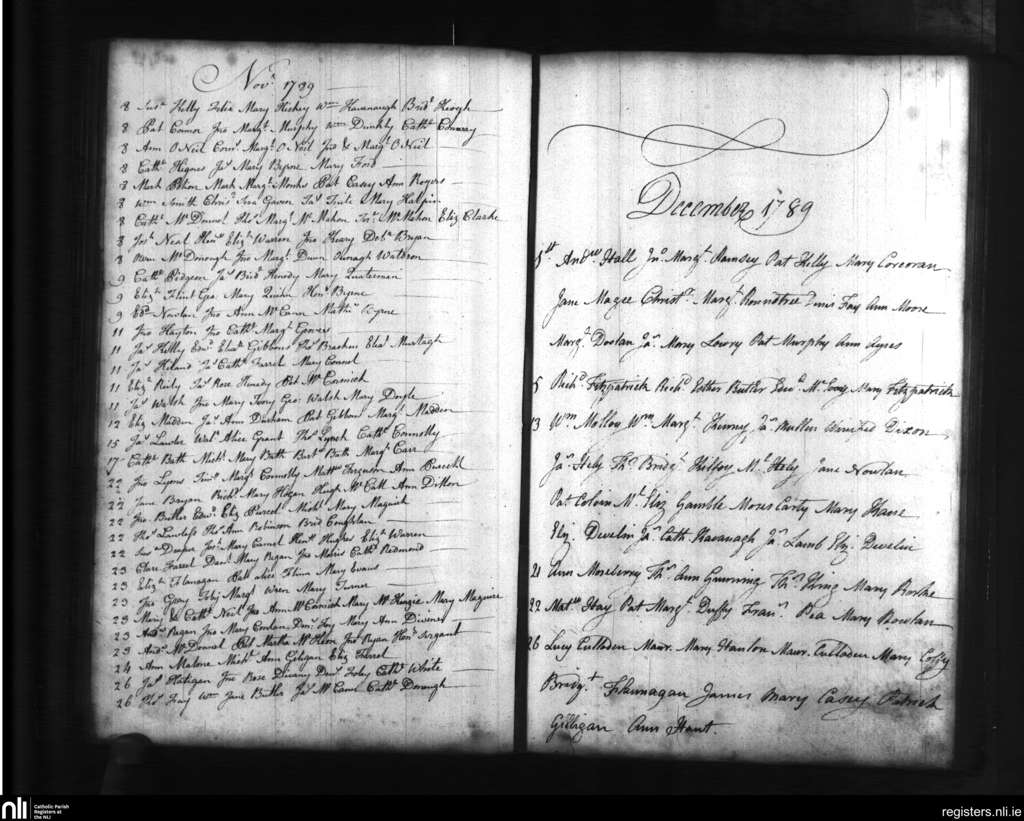 Novr 1789
8 Susa Kelly Felix Mary Hickey Wm Kavanaugh Bridt Keogh
8 Pat Connor Jno Margt Murphy Wm Dunkly Catht Conway
8 Ann O Neil Corns Margt O Neil Jno & Margt O Neil
8 Catht Higones Jas Mary Byrne Mary Ford
8 Mark Mark Margt Monks Pat Casey Ann Rogers
8 Wm Smith Chrisr Tute & Mary Halpin
8 Catht Mc Donnel Thos Margt Mc Mahon Mc Mahon Eliz Clarke
8 Josh Neal Henry Elizth Warren Jno Keary Debh Bryan
8 Owen Mc Donough Jno Margt Dunn Waldron
9 Catht Bridgen Jas Brid Mary Quaterman
9 Elizth Flint Geo. Mary Quinn Heny Byrne
9 Edwd Nowlan Jno Ann Mc Cann Byrne
11 Jno Hayton Jno Catht Margt Gowers
11 Jas Kelly Edwd Elizth Gibbons Thos Murtagh
11 Jas Hiland Jas Catht Farrel Mary Connel
11 Elizth Reily Jas Rose Pat Mc Cormick
11 Jas Walsh Jno Mary Terry Geo. Walsh Mary Doyle
12 Eliz Madden Jas Ann Durham Pat Gibbons Margt Madden
15 Jas Lawler Walr Alice Grant Thos Lynch Catht Connolly
17 Catht Bath Michl Mary Bath Bath Margt Carr
22 Jno Lyons Margt Connolly Matthw Ferguson Ann
22 Jane Bryan Richd Mary Hogan Hugh Mc Call Ann Dillon
22 Jno Butler Edwd Eliz Pursel Michl Mary Magurk
22 Thos Lawless Thos Ann Robinson Brid Coughlan
22 Susa Draper Jos. Mary Carrol Heny Hughes Elizth Warren
23 Clare Farrel Danl Mary Regan Jno Morris Catht Redmond
23 Elizth Flanagan Patt alice Flinn Mary Evans
23 Jno Gray Margt Wren Mary Turner
23 Mary & Catht Neil Jno Ann Mc Cormick Mary Mc Kenzie Mary Maguire
23 Andw Regan Jno Mary Conlan Fay Mary Ann Diveny
23 Andw Mc Donnel Pat Martha Mc Keon Jno Ryan Heny
24 Ann Malone Michl Ann Geligan Eliz Farrel
26 Jas Hatigan Jno Rose Danl Foley Catht White
26 Thos Fay Wm Jane Butler Jas Mc Cann Catht Donough
December 1789
1st Andrew Hall Jno. Margt Ramsey Pat Kelly Mary Corcoran
Jane Magee Christr Margt Roundtree Denis Fay Ann Moore
Margt Doolan Jas. Mary Lowry Pat Murphy Ann Ayres
5 Richd Fitzpatrick Richd Esther Butler Edwd Mc Evoy Mary Fitzpatrick
13 Wm Molloy Wm Margt Tierney, Jas Mullen Winifred Dixon
Jas. Hely Ths Bridgt Hely Jane Nowlan
Pat Colvin Mt Eliz Gamble Moses Carty Mary Keane
Eliz. Develin Jas. Cath. Kavanagh Jas. Lamb Eliz. Develin
21 Ann Moseberry Ths Ann Gunning Ths King Mary Rorke
22 Matw Hay Pat Margt Duffy Frans Rea Mary Nowlan
26 Lucy Culladen Maur. Mary Hanlon Maur. Culladen Mary Coffy
Bridgt Flannagan James Mary Casey Patrick
Gilligan Ann Hant.
nli Catholic Parish
Registers at
the NLI
registers.nli.ie